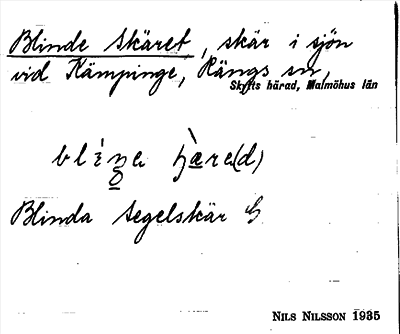 Blinde Skäret, skär i sjön
vid Kämpinge, Rängs sn,
Skytts härad, Malmöhus län
Blinda Segelskär
NILS NILSSON 1935